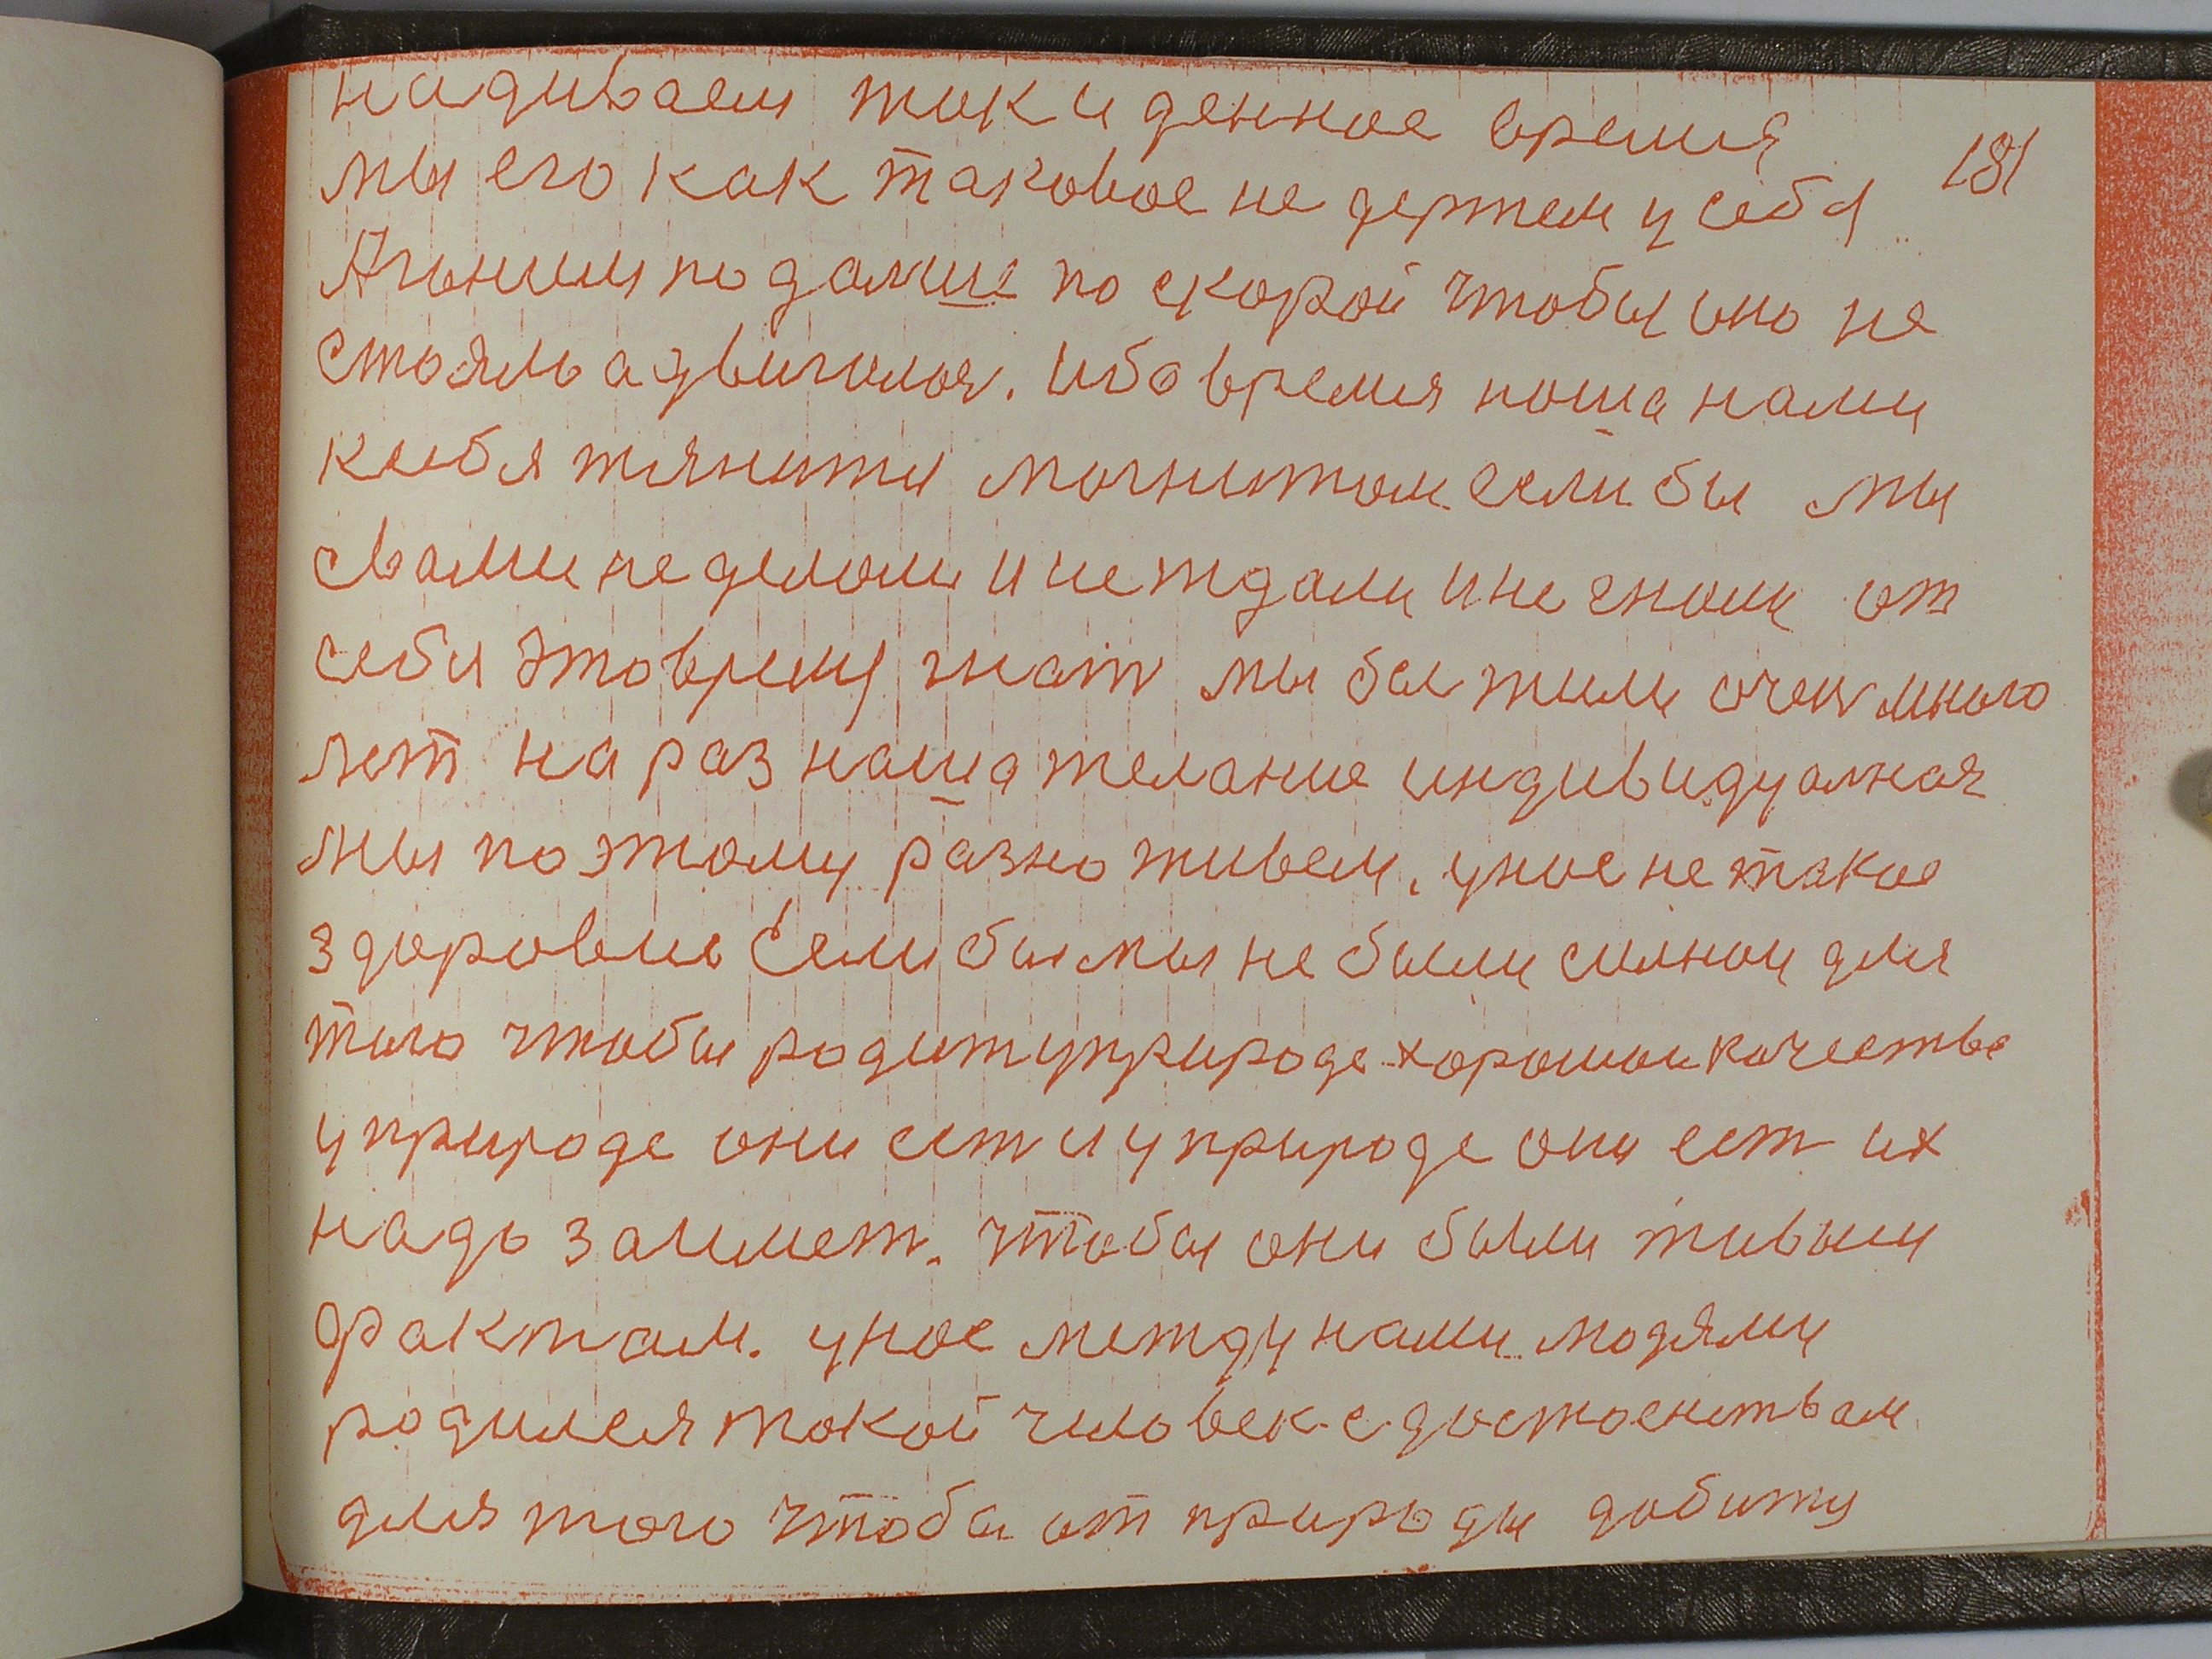 надиваем так и денное время
181
мы его как таковое не держем у себя
А гоним подалше по скорой чтобы оно не
стояло а двигалося. ибо время наша нами
ксебя тянити магнитом если бы мы
свами не делали и не ждали и не гнали от
себя это время гнат мы бы жили очен много
лет на раз наша желание индивидуалная
мы поэтому разно живем. унас не такое
здоровие Если бы мы не были силнаи для
того чтобы родит уприроде хорошаи качества
уприроде они ест и уприроде они ест их
надо заимет. чтобы они были живыи
фактам. унас между нами людями
родился такой человек с достоенствам
для того чтобы от природы добиту